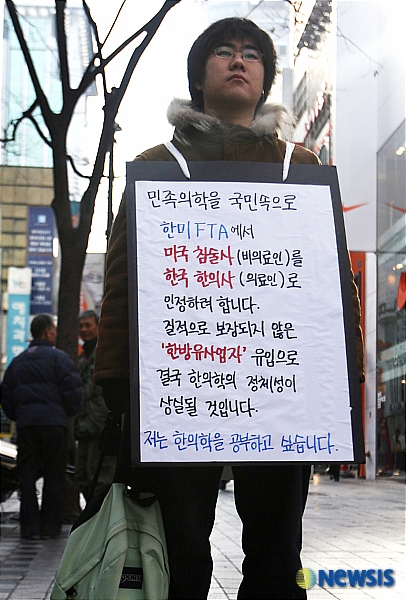 민족의학을 국민속으로
한미FTA에서
미국 침술사(비의료인)를
한국 한의사(의료인)로
인정하려 합니다.
질적으로 보장되지 않은
'한방유사업자' 유입으로
결국 한의학의 정체성이
상실될 것입니다.
저는 한의학을 공부하고 싶습니다.
NEWSIS